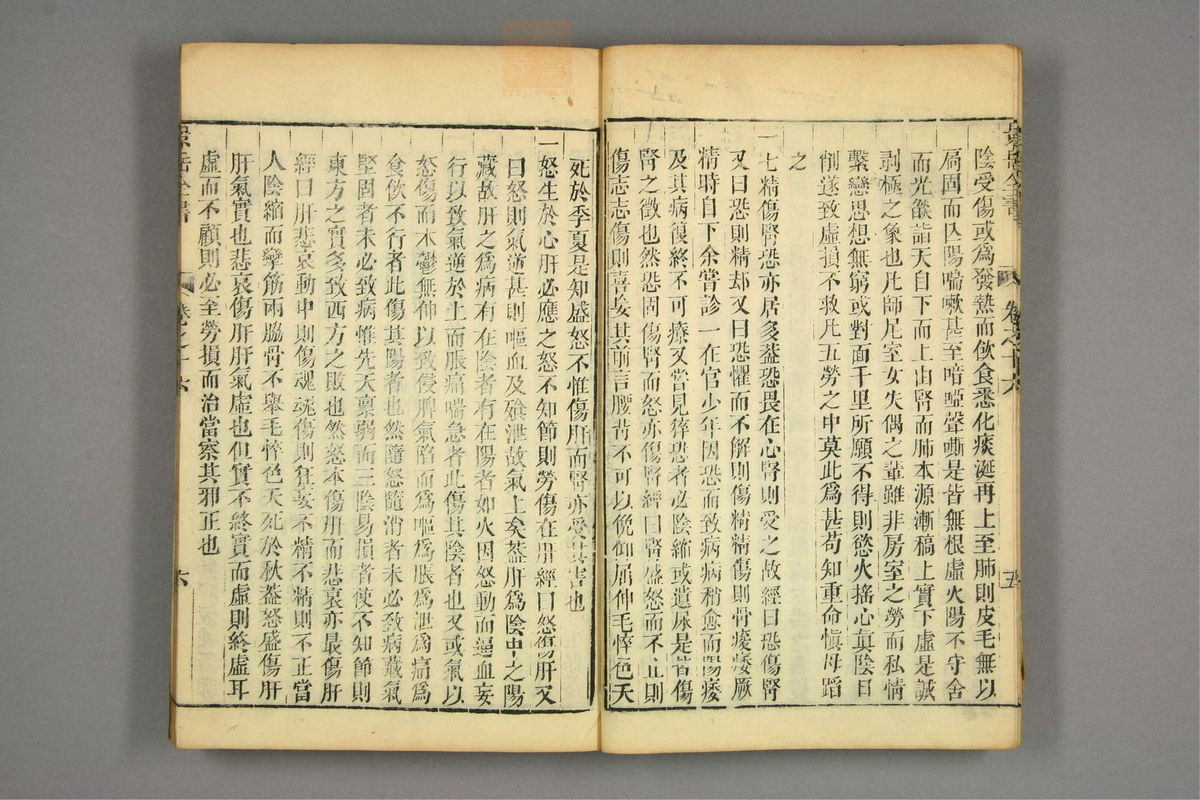 景岳全書
卷之十六
五
陰受傷或爲發熱而飲食悉化痰涎再上至肺則皮毛無以
扃固而亾陽喘嗽甚至喑啞聲嘶是皆無根虛火陽不守舍
而光燄詣天自下而上由腎而肺本源漸槁上實下虛是誠
剥極之象也凡師尼室女失偶之輩雖非房室之勞而私情
繫戀思想無窮或對面千里所願不得則慾火搖心眞陰日
削遂致虛損不救凡五勞之中莫此爲甚苟知重命愼毋蹈
之
一七精傷腎恐亦居多葢恐畏在心腎則受之故經曰恐傷腎
又曰恐則精却又曰恐懼而不解則傷精精傷則骨痠痿厥
精時自下余嘗診一在官少年因恐而致病病稍愈而陽痿
及其病復終不可療又嘗見猝恐者必陰縮或遺尿是皆傷
腎之徵也然恐固傷腎而怒亦傷腎經曰腎盛怒而不止則
傷志志傷則喜妄其前言腰背不可以俛仰屈伸毛悴色夭
死於季夏是知盛怒不惟傷肝而腎亦受其害也
一怒生於心肝必應之怒不知節則勞傷在肝經曰怒傷肝又
曰怒則氣逆甚則嘔血及飱泄故氣上矣葢肝爲陰中之陽
藏故肝之爲病有在陰者有在陽者如火因怒動而逼血妄
行以致氣逆於上而脹痛喘急者此傷其陰者也又或氣以
怒傷而木鬱無伸以致侵脾氣陷而爲嘔爲脹爲泄爲痛爲
食飲不行者此傷其陽者也然隨怒隨消者未必致病藏氣
堅固者未必致病惟先天禀弱而三陰易損者使不知節則
東方之實多致西方之敗也然怒本傷肝而悲哀亦最傷肝
經曰肝悲哀動中則傷魂魂傷則狂妄不精不精則不正當
人陰縮而攣筋兩脇骨不舉毛悴色夭死於秋葢怒盛傷肝
肝氣實也悲哀傷肝肝氣虛也但實不終實而虛則終虛耳
虛而不顧則必至勞損而治當察其邪正也
景岳全書
卷之十六
六